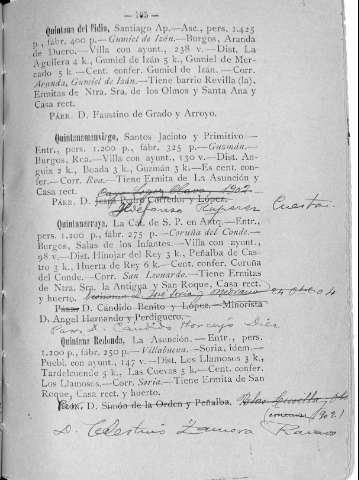 — 105 —
Quintana del Pidio, Santiago Ap.—Asc., pers. 1.425
p., fábr. 400 p.—Gumiel de Izán.—Burgos, Aranda
de Duero.—Villa con ayunt., 238 v.—Dist. La
Aguilera 4 k., Gumiel de Izán 5 k., Gumiel de Mer-
cado 5 k.—Cent. confer. Gumiel de Izán.—Corr.
Aranda, Gumiel de Izán.—Tiene barrio Revilla (la).
Ermitas de Ntra. Sra. de los Olmos y Santa Ana y
Casa rect.
PÁRR. D. Faustino de Grado y Arroyo.
Quintanamanvirgo, Santos Jacinto y Primitivo—
Entr., pers. 1.200 p., fábr. 325 p.—Guzmán.—
Burgos, Roa.—Villa con ayunt., 130 v.—Dist. An-
guix 2 k., Boada 3 k., Guzmán 3 k.—Es cent. con-
fer.—Corr. Roa.—Tiene Ermita de La Asunción y
Casa rect. 1902
PÁRR. D. Jesús Pedro Corredor y López.
Ildefonso
Quintanarraya, La Cát. de S. P. en Antq.—Entr.,
pers. 1.200 p., fábr. 275 p.—Coruña del Conde.—
Burgos, Salas de los Infantes.—Villa con ayunt.,
98 v.—Dist. Hinojar del Rey 3 k., Peñalba de Cas-
tro 3 k., Huerta de Rey 6 k.—Cent. confer. Coruña
del Conde.—Corr. San Leonardo.—Tiene Ermitas
de Ntra. Sra. la Antigua y San Roque, Casa rect.
y huerto.
PÁRR. D. Cándido Benito y López.—Minorista
D. Angel Hernando y Perdiguero.
Párr. D. Cándido Horcajo Díez
Quintana Redonda, La Asunción.—Entr., pers.
1.200 p., fábr. 250 p.—Villabuena.—Soria, idem.—
Puebl. con ayunt., 147 v.—Dist. Los Llamosos 3 k.,
Tardelcuende 5 k., Las Cuevas 5 k.—Cent. confer.
Los Llamosos.—Corr. Soria.—Tiene Ermita de San
Roque, Casa rect. y huerto.
PÁRR. D. Simón de la Orden y Peñalba. Blas
D. Celestino Zamora